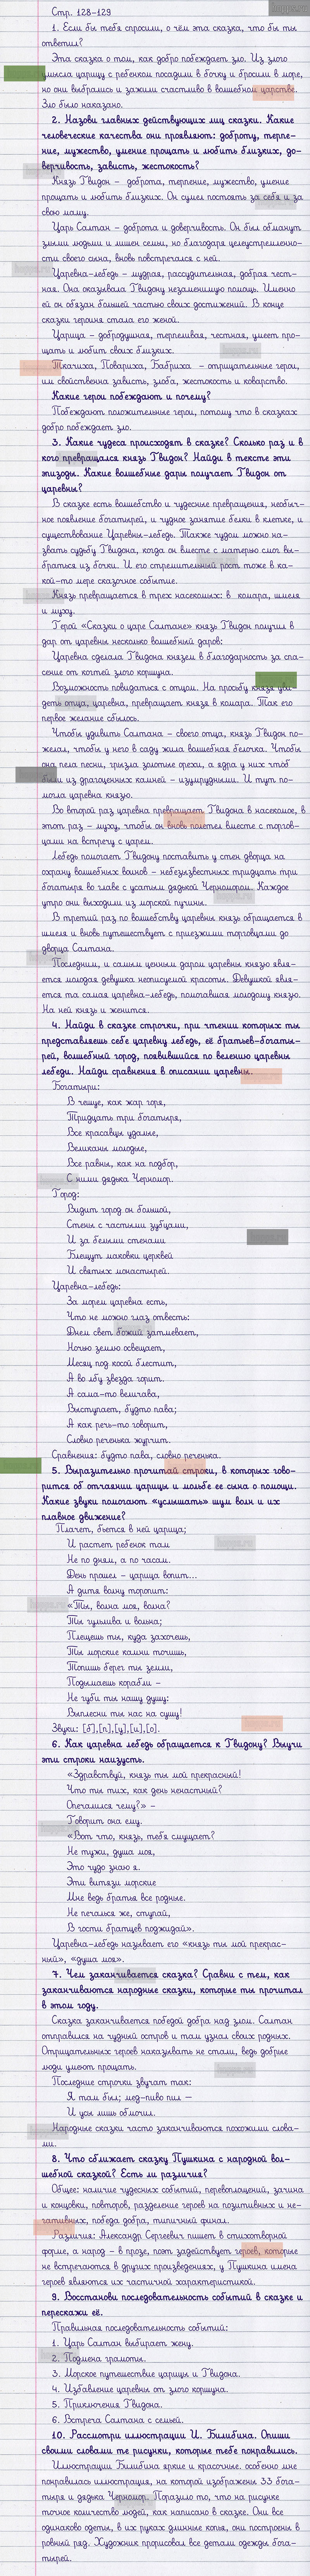 Стр. 128-129
1. Если бы тебя спросили, о чём эта сказка, что бы ты
ответил?
Эта сказка о том, как добро побеждает зло. Из злого
умысла царицу с ребенком посадили в бочку и бросили в море,
но они выбрались и зажили счастливо в волшебном царстве.
Зло было наказано.
2. Назови главных действующих лиц сказки. Какие
человеческие качества они проявляют: доброту, терпе-
ние, мужество, умение прощать и любить близких, до-
верчивость, зависть, жестокость?
Князь Гвидон – доброта, терпение, мужество, умение
прощать и любить близких. Он сумел постоять за себя и за
свою маму.
Царь Салтан – доброта и доверчивость. Он был обманут
злыми людьми и лишен семьи, но благодаря целеустремленно-
сти своего сына, вновь повстречался с ней.
Царевна-лебедь – мудрая, рассудительная, добрая чест-
ная. Она оказывала Гвидону незаменимую помощь. Именно
ей он обязан большей частью своих достижений. В конце
сказки героиня стала его женой.
Царица – добродушная, терпеливая, честная, умеет про-
щать и любит своих близких.
Ткачиха, Повариха, Бабриха – отрицательные герои,
им свойственна зависть, злоба, жестокость и коварство.
Какие герои побеждают и почему?
Побеждают положительные герои, потому что в сказках
добро побеждает зло.
3. Какие чудеса происходят в сказке? Сколько раз и в
кого превращался князь Гвидон? Найди в тексте эти
эпизоды. Какие волшебные дары получает Гвидон от
царевны?
В сказке есть волшебство и чудесные превращения, необыч-
ное появление богатырей, и чудное занятие белки в клетке, и
существование Царевны-лебедь. Также чудом можно на-
звать судьбу Гвидона, когда он вместе с матерью смог вы-
браться из бочки. И его стремительный рост тоже в ка-
кой-то мере сказочное событие.
Князь превращается в трех насекомых: в комара, шмеля
и муху.
Герой «Сказки о царе Салтане» князь Гвидон получил в
дар от царевны несколько волшебный даров:
Царевна сделала Гвидона князем в благодарность за спа-
сение от когтей злого коршуна.
Возможность повидаться с отцом. На просьбу князя уви-
деть отца, царевна, превращает князя в комара. Так его
первое желание сбылось.
Чтобы удивить Салтана – своего отца, князь Гвидон по-
желал, чтобы у него в саду жила волшебная белочка. Чтобы
она пела песни, грызла золотые орехи, а ядра у них чтоб
были из драгоценных камней – изумрудными. И тут по-
могла царевна князю.
Во второй раз царевна превращает Гвидона в насекомое, в
этот раз – муху, чтобы он вновь полетел вместе с торгов-
цами на встречу с царем.
Лебедь помогает Гвидону поставить у стен дворца на
охрану волшебных воинов – небезызвестных тридцать три
богатыря во главе с усатым дядькой Черномором. Каждое
утро они выходили из морской пучины.
В третий раз по волшебству царевны князь обращается в
шмеля и вновь путешествует с приезжими торговцами до
дворца Салтана.
Последним, и самым ценным даром царевны князю явля-
ется молодая девушка неписуемой красоты. Девушкой явля-
ется та самая царевна-лебедь, помогавшая молодому князю.
На ней князь и женится.
4. Найди в сказке строчки, при чтении которых ты
представляешь себе царевну лебедь, её братьев-богаты-
рей, волшебный город, появившийся по велению царевны
лебеди. Найди сравнения в описании царевны.
Богатыри:
В чешуе, как жар горя,
Тридцать три богатыря,
Все красавцы удалые,
Великаны молодые,
Все равны, как на подбор,
С ними дядька Черномор.
Город:
Видит город он большой,
Стены с частыми зубцами,
И за белыми стенами
Блещут маковки церквей
И святых монастырей.
Царевна-лебедь:
За морем царевна есть,
Что не можно глаз отвесть:
Днем свет божий затмевает,
Ночью землю освещает,
Месяц под косой блестит,
А во лбу звезда горит.
А сама-то величава,
Выступает, будто пава;
А как речь-то говорит,
Словно реченька журчит.
Сравнения: будто пава, словно реченька.
5. Выразительно прочитай строки, в которых гово-
рится об отчаянии царицы и мольбе ее сына о помощи.
Какие звуки помогают «услышать» шум волн и их
плавное движение?
Плачет, бьется в ней царица;
И растет ребенок там
Не по дням, а по часам.
День прошел – царица вопит...
А дитя волну торопит:
«Ты, волна моя, волна?
Ты гульлива и вольна;
Плещешь ты, куда захочешь,
Ты морские камни точишь,
Топишь берег ты земли,
Подымаешь корабли –
Не губи ты нашу душу:
Выплесни ты нас на сушу!
Звуки: [б],[п],[у],[и],[о].
6. Как царевна лебедь обращается к Гвидону? Выучи
эти строки наизусть.
«Здравствуй, князь ты мой прекрасный!
Что ты тих, как день ненастный?
Опечалился чему?» –
Говорит она ему.
«Вот что, князь, тебя смущает?
Не тужи, душа моя,
Это чудо знаю я.
Эти витязи морские
Мне ведь братья все родные.
Не печалься же, ступай,
В гости братцев поджидай».
Царевна-лебедь называет его «князь ты мой прекрас-
ный», «душа моя».
7. Чем заканчивается сказка? Сравни с тем, как
заканчиваются народные сказки, которые ты прочитал
в этом году.
Сказка заканчивается победой добра над злом. Салтан
отправился на чудный остров и там узнал своих родных.
Отрицательных героев наказывать не стали, ведь добрые
люди умеют прощать.
Последние строчки звучат так:
Я там был; мед-пиво пил –
И усы лишь обмочил.
Народные сказки часто заканчиваются похожими слова-
ми.
8. Что сближает сказку Пушкина с народной вол-
шебной сказкой? Есть ли различия?
Общее: наличие чудесных событий, перевоплощений, зачина
и концовки, повторов, разделение героев на позитивных и не-
гативных, победа добра, типичный финал.
Различия: Александр Сергеевич пишет в стихотворной
форме, а народ – в прозе, поэт задействует героев, которые
не встречаются в других произведениях, у Пушкина имена
героев являются их частичной характеристикой.
9. Восстанови последовательность событий в сказке и
перескажи её.
Правильная последовательность событий:
1. Царь Салтан выбирает жену.
2. Подмена грамоты.
3. Морское путешествие царицы и Гвидона.
4. Избавление царевны от злого коршуна.
5. Приключения Гвидона.
6. Встреча Салтана с семьей.
10. Рассмотри иллюстрации И. Билибина. Опиши
своими словами те рисунки, которые тебе понравились.
Иллюстрации Билибина яркие и красочные. особенно мне
понравилась иллюстрация, на которой изображены 33 бога-
тыря и дядька Черномор. Поразило то, что на рисунке
точное количество людей, как написано в сказке. Они все
одинаково одеты, в их руках длинные копья, они построены в
ровный ряд. Художник прорисовал все детали одежды бога-
тырей.